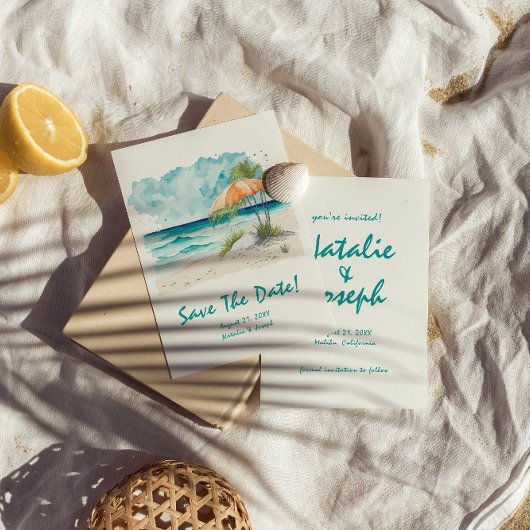 Save The Date!
August 21, 20XX
Natalie & Joseph
you're invited!
Natalie
&
Joseph
21, 20XX
Malibu, California
formal invitation to follow